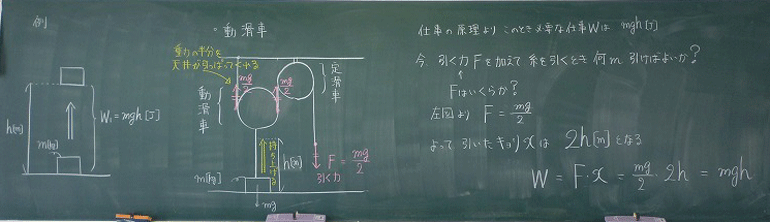 例
h[m]
m[kg]
W=mgh[J]
・動滑車
重力の半分を
天井が引っぱってくれる
mg/2
mg/2
動滑車
定滑車
持ち上げる
h[m]
m[kg]
mg
F=mg/2
引く力
仕事の原理より このとき必要な仕事Wは mgh[J]
今 引く力Fを加えて糸を引くとき 何m 引けばよいか?
Fはいくらか?
左図より F=mg/2
よって 引いたキョリxは 2h[m]となる
W = F・x = mg/2・2h = mgh